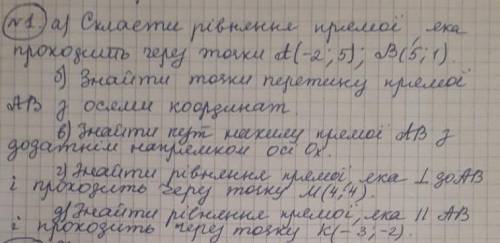 №1. а) Скласти рівняння прямої, яка
проходить через точки А(-2; 5); В(5; 1).
б) Знайти точки перетину прямої
АВ з осями координат.
в) Знайти кут нахилу прямої АВ з
додатнім напрямком осі Ох.
г) Знайти рівняння прямої, яка ⊥ до АВ
і проходить через точку М(4; 4).
д) Знайти рівняння прямої, яка || АВ
і проходить через точку К(-3; -2).